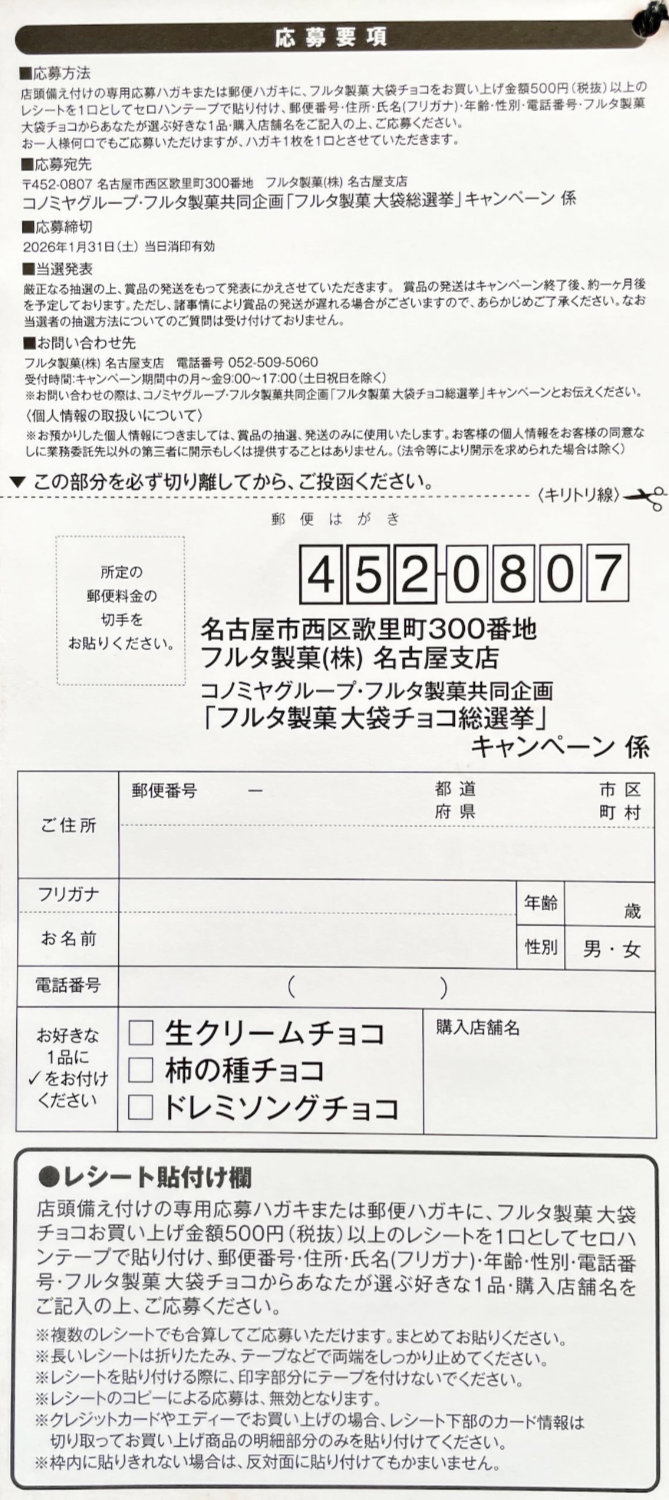 応募要項
■応募方法
店頭備え付けの専用応募ハガキまたは郵便ハガキに、フルタ製菓 大袋チョコをお買い上げ金額500円(税抜)以上の
レシートを1口としてセロハンテープで貼り付け、郵便番号・住所・氏名(フリガナ)・年齢・性別・電話番号・フルタ製菓
大袋チョコからあなたが選ぶ好きな1品・購入店舗名をご記入の上、ご応募ください。
お一人様何口でもご応募いただけますが、ハガキ1枚を1口とさせていただきます。
■応募宛先
〒452-0807 名古屋市西区歌里町300番地 フルタ製菓(株) 名古屋支店
コノミヤグループ・フルタ製菓共同企画「フルタ製菓 大袋総選挙」キャンペーン 係
■応募締切
2026年1月31日(土) 当日消印有効
■当選発表
厳正なる抽選の上、賞品の発送をもって発表にかえさせていただきます。 賞品の発送はキャンペーン終了後、約一ヶ月後
を予定しております。ただし、諸事情により賞品の発送が遅れる場合がございますので、あらかじめご了承ください。なお
当選者の抽選方法についてのご質問は受け付けておりません。
■お問い合わせ先
フルタ製菓(株) 名古屋支店 電話番号 052-509-5060
受付時間:キャンペーン期間中の月～金9:00～17:00(土日祝日を除く)
※お問い合わせの際は、コノミヤグループ・フルタ製菓共同企画「フルタ製菓 大袋チョコ総選挙」キャンペーンとお伝えください。
〈個人情報の取扱いについて〉
※お預かりした個人情報につきましては、賞品の抽選、発送のみに使用いたします。お客様の個人情報をお客様の同意な
しに業務委託先以外の第三者に開示もしくは提供することはありません。(法令等により開示を求められた場合は除く)
▼ この部分を必ず切り離してから、ご投函ください。
〈キリトリ線〉
郵便はがき
所定の
郵便料金の
切手を
お貼りください。
452-0807
名古屋市西区歌里町300番地
フルタ製菓(株) 名古屋支店
コノミヤグループ・フルタ製菓共同企画
「フルタ製菓 大袋チョコ総選挙」
キャンペーン 係
ご住所
郵便番号 －
都道
府県
市区
町村
フリガナ
お名前
年齢 歳
性別 男・女
電話番号 ( )
お好きな
1品に
✓をお付け
ください
□ 生クリームチョコ
□ 柿の種チョコ
□ ドレミソングチョコ
購入店舗名
●レシート貼付け欄
店頭備え付けの専用応募ハガキまたは郵便ハガキに、フルタ製菓 大袋
チョコお買い上げ金額500円(税抜)以上のレシートを1口としてセロハ
ンテープで貼り付け、郵便番号・住所・氏名(フリガナ)・年齢・性別・電話番
号・フルタ製菓 大袋チョコからあなたが選ぶ好きな1品・購入店舗名を
ご記入の上、ご応募ください。
※複数のレシートでも合算してご応募いただけます。まとめてお貼りください。
※長いレシートは折りたたみ、テープなどで両端をしっかり止めてください。
※レシートを貼り付ける際に、印字部分にテープを付けないでください。
※レシートのコピーによる応募は、無効となります。
※クレジットカードやエディーでお買い上げの場合、レシート下部のカード情報は
切り取ってお買い上げ商品の明細部分のみを貼り付けてください。
※枠内に貼りきれない場合は、反対面に貼り付けてもかまいません。